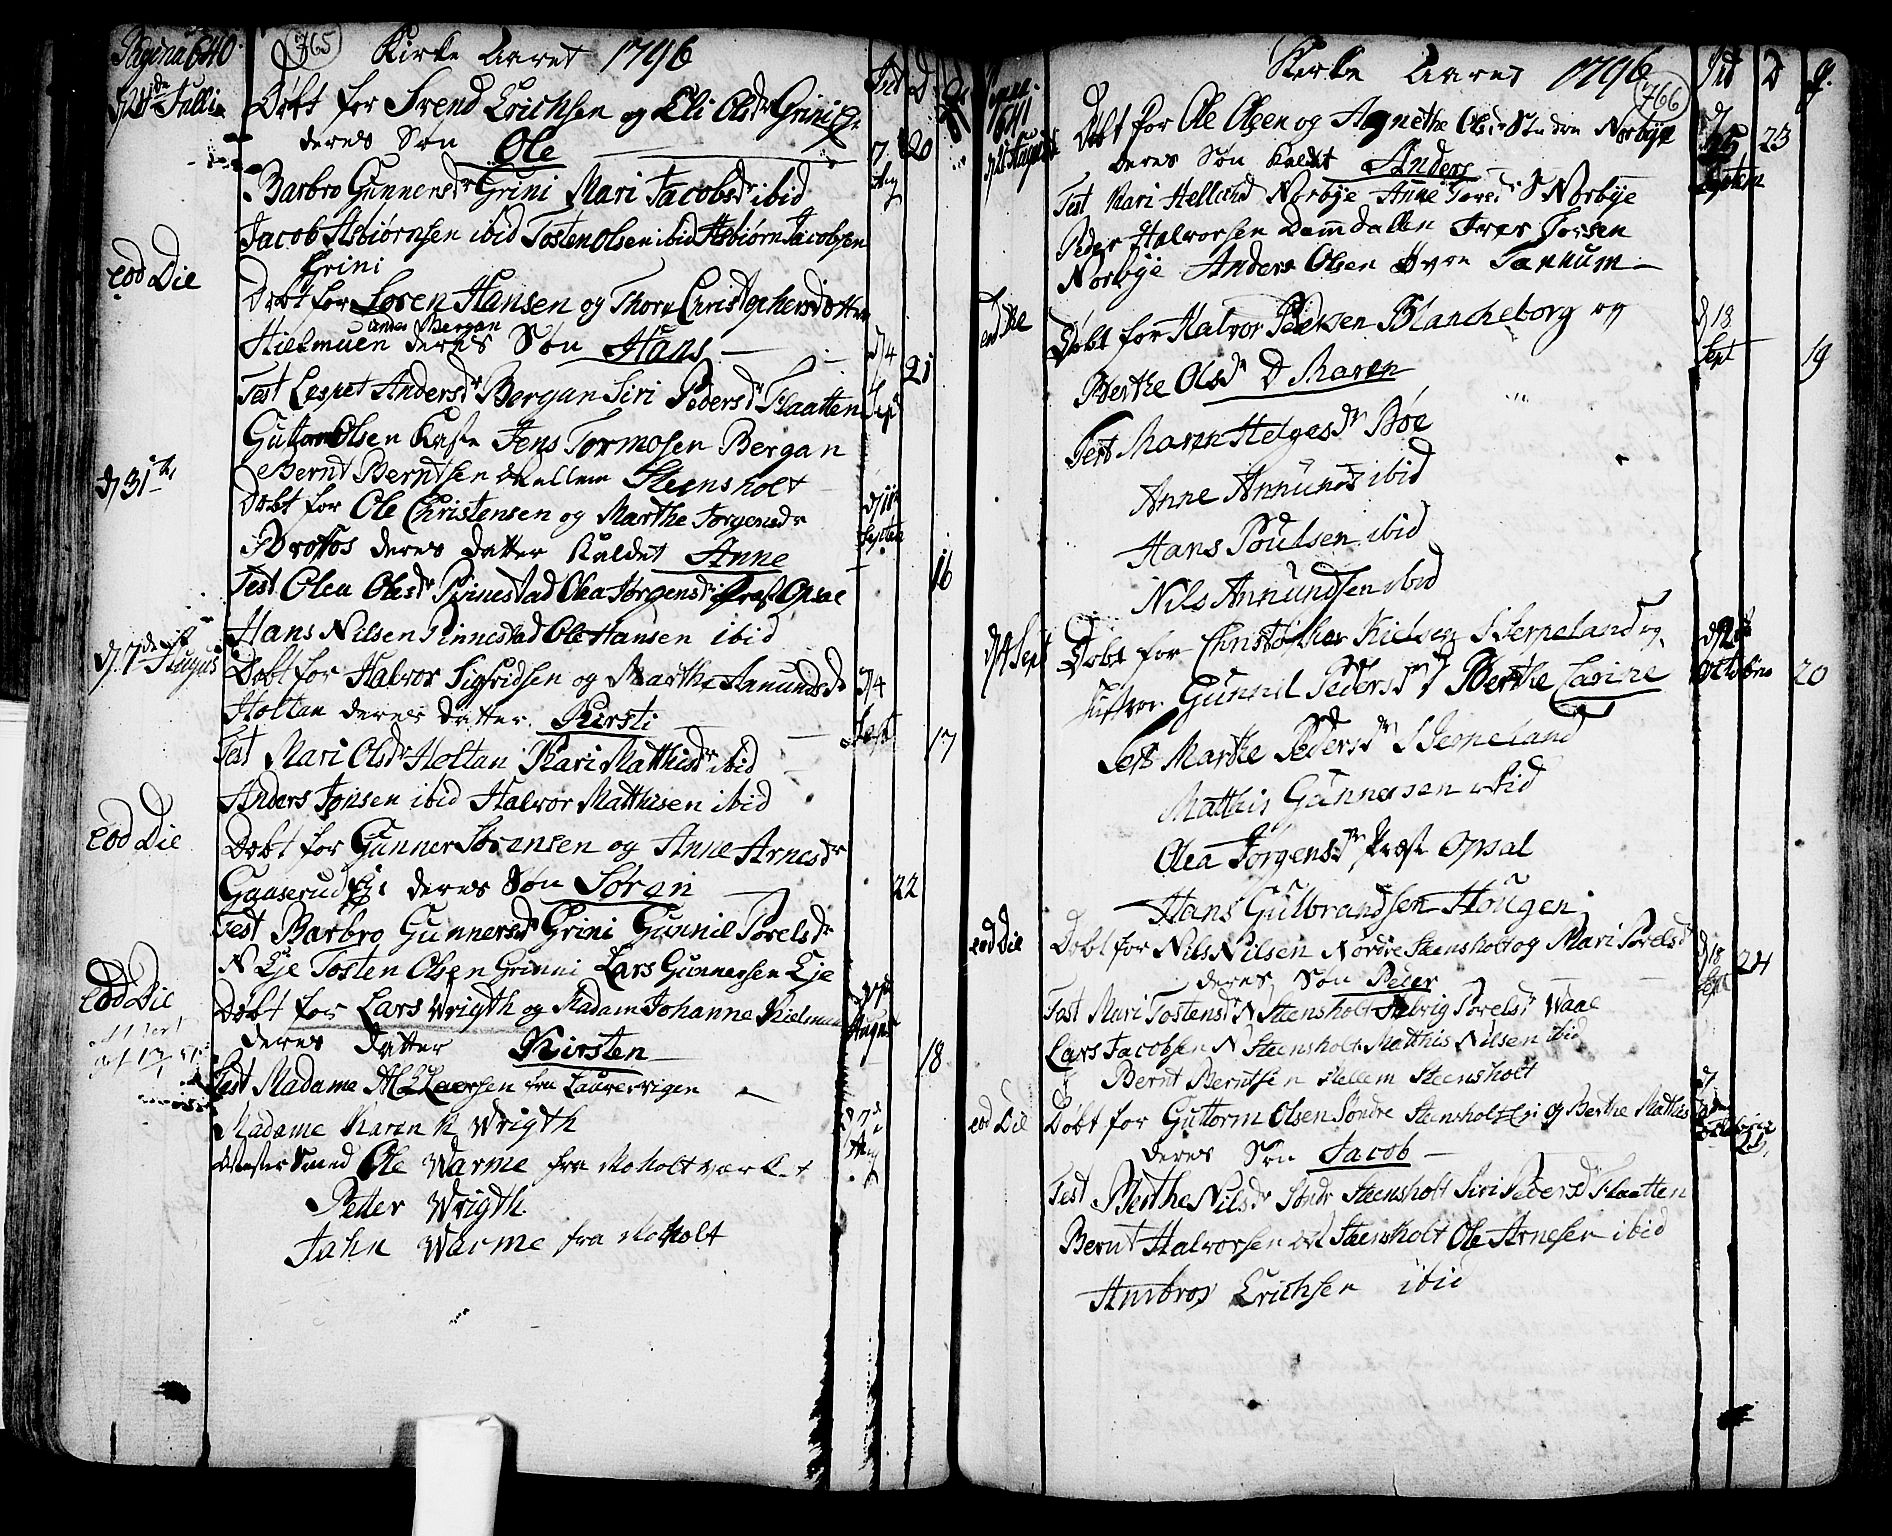 Pagina 640. 765 Kirke Aaret 1796
d 24de Julii Døbt for Svend Erichsen og Eli Olsdr Grini Eje
deres Søn Ole 20
Barbro Gunnersdr Grini Mari Jacobsdr ibid
Jacob Asbiørnsen ibid Tosten Olsen ibid Asbiørn Jacobsen
Grini
eod Die Døbt for Soren Hansen og Thore Christophersdotter
under Bergan
Hielmuen deres Søn Hans d 4 Sept 21
Test Lespet Andersdr Bergan Siri Pedersdr Flaatten
Guttorm Olsen Kaste Jens Tormosen Bergan
Bernt Berntsen Mellem Steensholt
d 31te Døbt for Ole Christensen og Marthe Jorgensdr
Broffos deres datter Kaldet Anne d 11te Septem 16
Test Olea Olsdr Pinnestad Olea Jørgensdr Præst Opsal
Hans Nilsen Pinnestad Ole Hansen ibid
d. 7de August Døbt for Halvor Sigfridsen og Marthe Anundsdr
Holtan deres datter Kirsti d 4 Sept 17
Test Mari Olsdr Holtan Kari Matthisdr ibid
Anders Jonsen ibid Halvor Matthisen ibid
eod Die Døbt for Gunner Sørensen og Anne Arnesdr
Gaaserud Eje deres Søn Søren 22
Test Barbro Gunnersdr Grini Gunnil Porelsdr
N Eje Tosten Olsen Grinni Lars Gunnersen Eje
eod Die Døbt for Lars Wrigth og Madam Johanne Nielsen
deres datter Kirsten 18
Test Madame M Larsen fra Laurervigen
Madame Karen N Wrigth
Mester Smed Ole Warme fra Moholt værk
Petter Wrigth
Jahn Warme fra Moholt
Pagina 641 Kirke Aaret 1796 766
Døbt for Ole Olsen og Agnethe Olsdr Søndre Norbye
deres Søn kaldet Anders 23
Test Mari Helland Norbye Anne S Norbye
Peder Halvorsen Damdallen Iver Torsen
Norbye Anders Olsen Øvre Sannum
eod Die Døbt for Halvor Pedersen Blancheborg og d 18 Sept
Berthe Olsdr D Maren 19
Test Maren Helgesdr Bøe
Anne Annunds ibid
Hans Poulsen ibid
Nils Annundsen ibid
d 4 Sept Døbt for Christopher Nielsen Skerneland og
hustroe Gunnil Pedersdr D Berthe Carine Octobris 20
Test Marthe Pedersdr Skerneland
Matthis Gunnersen ibid
Olea Jørgensdr Præst Opsal
Hans Gulbrandsen Hougen
eod Die Døbt for Nils Nilsen Nordre Steensholt og Mari Porelsdr
deres Søn Peder d 18 Sept 24
Test Mari Tostensdr N Steensholt Porelsdr Waae
Lars Jacobsen N Steensholt Matthis Nilsen ibid
Bernt Berntsen Mellem Steensholt
eod Die Døbt for Guttorm Olsen Søndre Steensholt Eje og Berthe Mathis
deres Søn Jacob 25
Test Berthe Nilsdr Søndr Steensholt Siri Pedersdr Flaatten
Bernt Halvorsen Steensholt Ole Arnesen ibid
Ambros Erichsen ibid